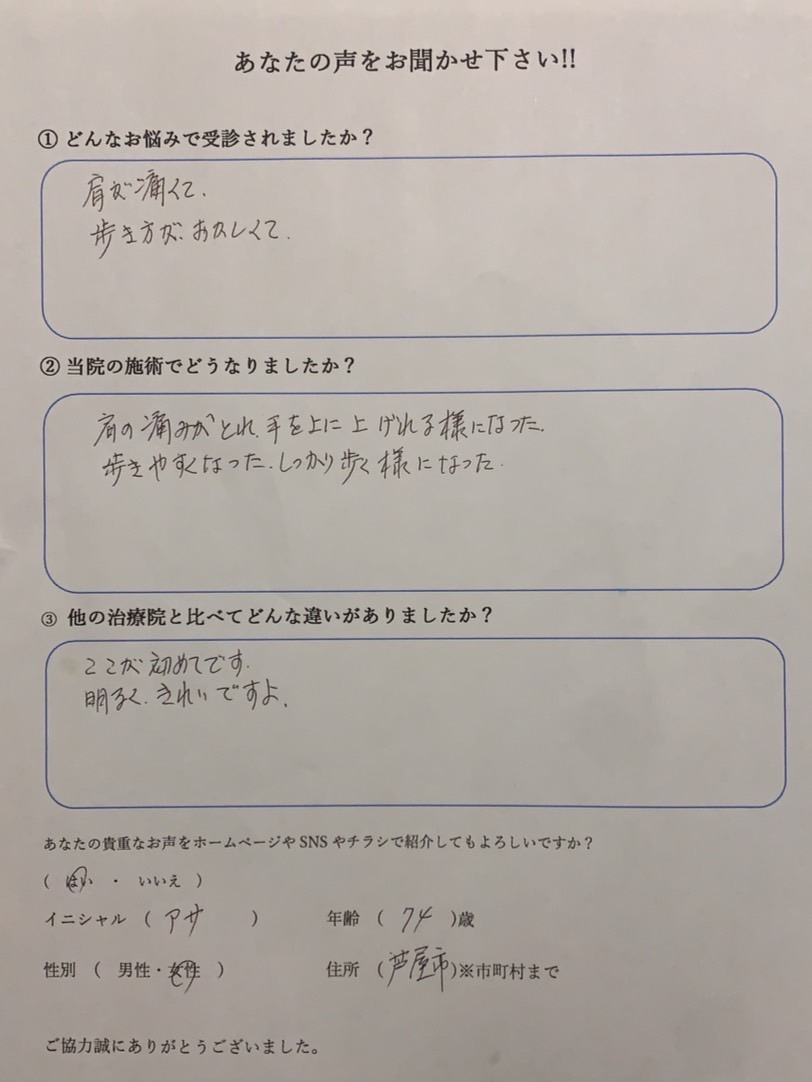 あなたの声をお聞かせ下さい!!
① どんなお悩みで受診されましたか？
肩が痛くて.
歩き方が、おかしくて.
② 当院の施術でどうなりましたか？
肩の痛みがとれ、手を上に上げれる様になった.
歩きやすくなった.しっかり歩く様になった.
③ 他の治療院と比べてどんな違いがありましたか？
ここが初めてです.
明るく.きれいですよ.
あなたの貴重なお声をホームページやSNSやチラシで紹介してもよろしいですか？
( はい ・ いいえ )
イニシャル ( アサ ) 年齢 ( 74 )歳
性別 ( 男性・女性 ) 住所 (芦屋市)※市町村まで
ご協力誠にありがとうございました。